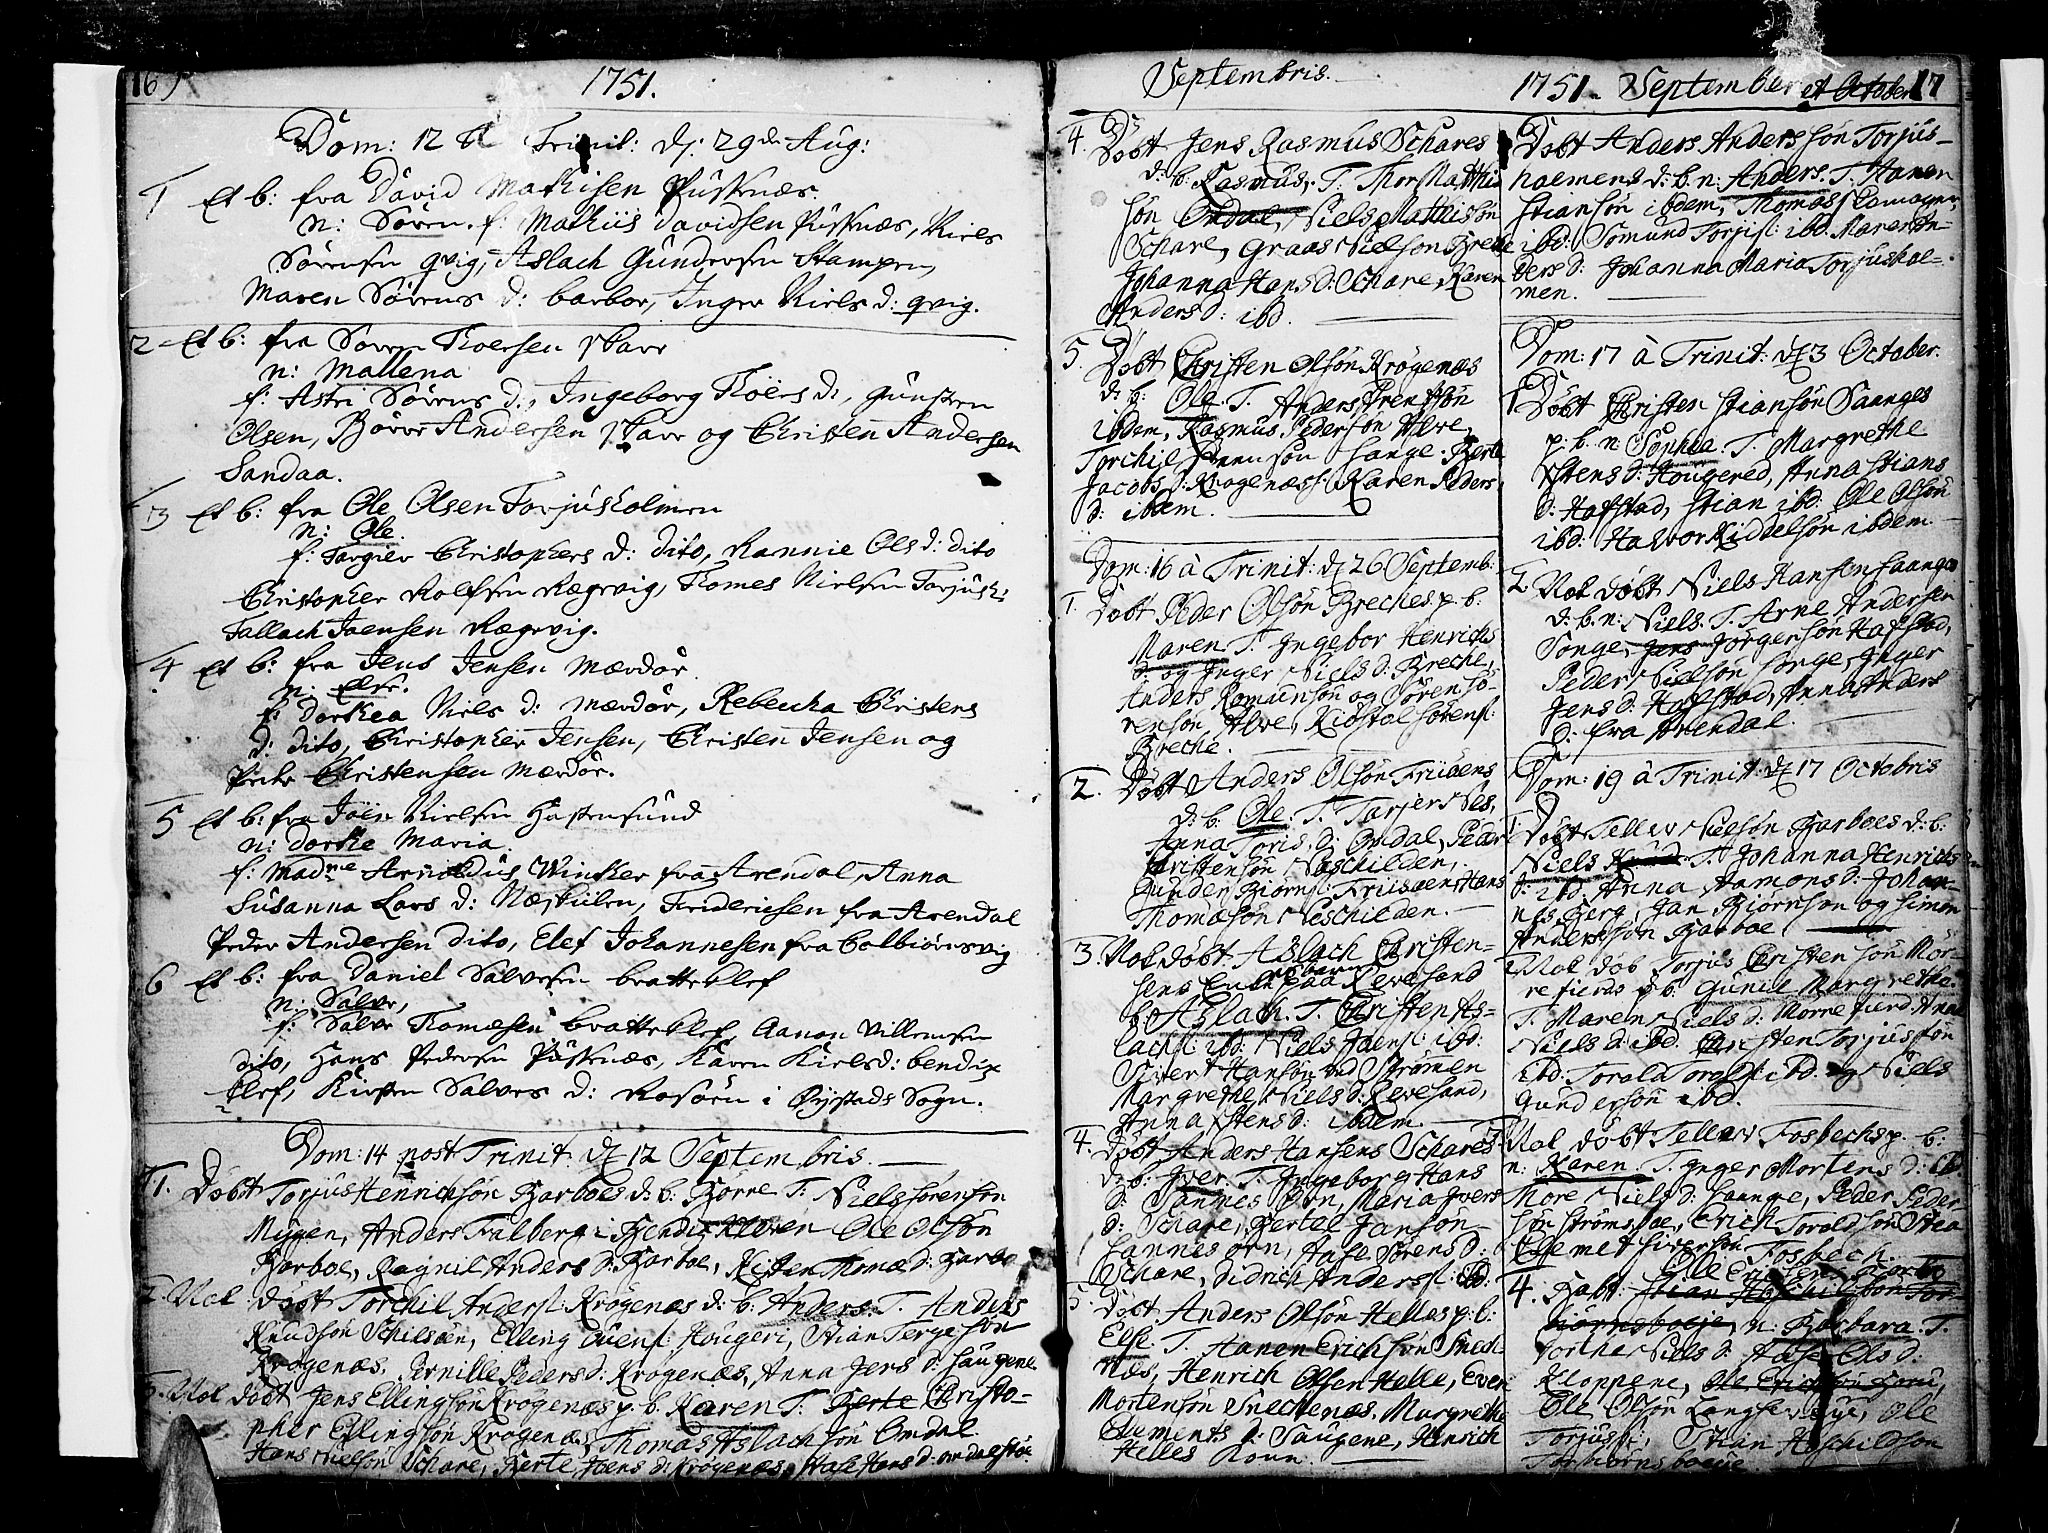 16
1751.
Dom: 12 à Trinit: d: 29de Aug:
1 Et b: fra David Mathisen Pusknæs.
n: Sören. f: Mathiis Davidsen Pusknæs, Niels
Sörensen qvig, Aslach Gundersen Stampen,
Maren Sörens d: barboe, Inger Niels d: qvig.
2 Et b: fra Sören Thoersen Skarr
n: Mallena
f: Astri Sörens d:, Ingeborg Thoers d:, gunsten
Olsen, Börre Andersen Skarr og Christen Andersen
Sandaa.
3 Et b: fra Ole Olsen Torjusholmen
n: Ole.
f: Targier Christophers d: dito, Rannie Ols d: dito
Christopher Rolfsen Rægevig, Thomes Nielsen Torjush:
Tallach Joensen Rægevig.
4 Et b: fra Jens Jensen Mærdör
n: Else.
f: Dorthea Niels d: Mærdör, Rebecka Christens
d: dito, Christopher Jensen, Christen Jensen og
Peder Christensen Mærdör.
5 Et b: fra Joen Nielsen Hastensund
n: Dorthe Maria.
f: Madme Arnoldus Winther fra Arendal, Anna
Susanna Lars d: Næskilen, Friderichsen fra Arendal
Peder Andersen dito, Elef Johannesen fra Colbiörnsvig
6 Et b: fra Daniel Salvesen bratteklef
n: Salve,
f: Salve Thomesen bratteklef, Aanon Villumsen
dito, Hans Pedersen Pusknæs, Karen Niels d: bendix
klef, Kirsten Salves d: Rosöen i Öystads Sogn.
Dom: 14 post Trinit: d 12 Septembris.
1. Döbt Torjus Henrichsön Barboes d: b: Börre T. Niels Sörensön
Mygen, Anders Falberg i Bendixkleven Ole Olsön
Barboe, Ragnil Anders d: Barboe, Kisten Thomæ d: Barbo
2. Nok döbt Torchil Anders: Krögenæs d: b: Anders. T. Anders
Knudsön Schilsöen, Elling Evens: Hougeri, Stian Tergesön
Krögenæs, Pernille Peders d: Krögenæs, Anna Jens d: Saugene
3. Nok döbt Jens Ellingsön Krögenæs p. b. Karen T. Berte Christo-
pher Ellingsön Krögenæs, Thomas Aslachsön Omdal
Hans Nielsön Schare, Berte Jens d: Krögenæs, Aase Hans d: omdalstö
Septembris.
4. Döbt Jens Rasmus Schares
d: b: Rasmus, T. Thor Matthi
sön Omdal, Niels Matthisön
Schare, Graas Nielsön Breke
Johanna Hans d: Schare, Karen
Anders d: ibd.
5. Döbt Christen Olsön Krögenæs
d: b: Ole. T. Anders Prentsön
ibdem, Rasmus Pedersön Alve,
Torchil Svensön Sange. Berte
Jacobs d: Krögenæs: Karen Peders
d: ibdem.
Dom: 16 à Trinit: d 26 Septemb:
1. Döbt Peder Olsön Breches p. b:
Maren T. Ingebor Henrichs
d: og Inger Niels d: Breche,
Anders Romundsön og Sören Sö-
rensön Alve, Kiöstol Sörens:
Breche.
2. Döbt Anders Olsön Friisöens
d: b: Ole: T. Tarjer Nes,
Anna Toris d: Omdal, Peder
Christensön Neschilden,
Gunder Biörns: Friisöen Hans
Thomæsön Neschilden.
3. Nok döbt Aslach Christen-
sens Enke paa Revesand
b: Aslach. T. Christen As-
lachs: ibd: Niels Joens: ibd:
Sivert Hansön ved Strömen
Margrethe Niels d: Revesand,
Anna Stens d: ibdem.
4. Döbt Anders Hansens Schares
d: b: Iver. T. Ingeborg Hans
d: Sannes Örn, Maria Ivers
d: Schare, Bertel Jansön
Sannes Örn, Aase Sörens d:
Schare, Didrich Anders: ibd:
5. Döbt Anders Olsön Helles p: b:
Else. T. Hanen Erichsön Snech
næs, Henrich Olsen Helle, Even
Mortensön Snechenæs, Margrethe
Clements d: Saugene, Henrich
Helles Konn.
1751. September et October 17
Döbt Anders Andersön Torjus-
holmens d: b. n: Anders. T. Hanen
Stiansön ibdem, Thomas
ibd: Somund Torjis: ibd. Maren Ön-
ders d: Johanna Maria Torjushol-
men.
Dom: 17 à Trinit: d 3 October.
1. Döbt Christen Stiansön Saanges
p. b. n: Sophia. T. Margrethe
Stens d: Hougered, Anna Stians
d: Hafstad, Stian ibd: Ole Olsön
ibd: Halvor Kiddelsön ibdem.
2. Nok döbt Niels Hansen Saange
d: b. n: Niels. T. Arne Andersen
Songe, Jens Jörgensön Hafstad,
Peder Nielsön Songe, Inger
Jens d: Hafstad, Anna Anders
d: fra Arendal.
Dom: 19 à Trinit: d 17 Octobris
1. Döbt Tellev Nielsön Barboes d: b:
Niels T. Johanna Henrichs
d: ibd, Anna Aamons d: Johan-
nes Berg, Jan Biörnsön og Simon
Andersön Barboe.
2. Nok döb Torjus Christensön Mör-
refierds p b: Gunil Margrethe.
T. Maren Niels d: Morrefierd. Anne
Niels d: ibd: Christen Torjussön
ibd: Torold Torolfs: ibd. og Niels
Gundersön ibd.
3. Nok döbt Tellev Fosbechs p. b:
n: Karen T. Inger Mortens d: ib.
More Niels d: Saange, Peder Peder-
sön Strömsboe, Erich Toroldsön Stea
Clemet Siversön Fosbech.
Ole
4. Habt: Stian Aschildsön Tor-
biörnsboeje, n: Barbara. T.
Dorthe Niels d: Aase Ols d:
Kloppene, Ole
Ole Olsön Langsevaje, Ole
Torjuss:, Stian Aschildsön
Torbiörnsboeje.